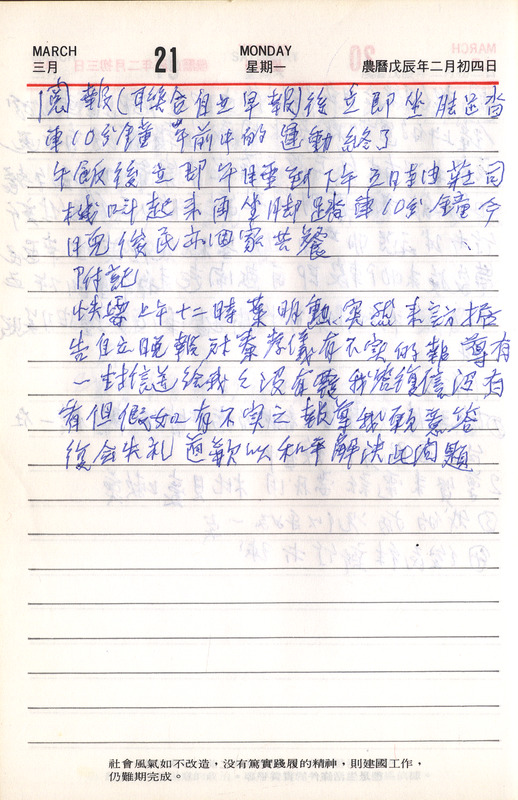 MARCH 21 MONDAY
三月 星期一 農曆戊辰年二月初四日
閱報(聯合自立早報)後立即坐脚踏
車10分鐘 午前中的運動終了
午飯後立即午睡到下午五時由莊司
機叫起來再坐脚踏車10分鐘今
晚俊民亦回家共餐
附記
快要上午十二時葉明勲突然來訪據
告自立晚報對秦孝儀有不实的報導有
一封信送給我之沒有 我答復信沒有
看但假如有不实之報導我願意答
復会失礼道歉以和平解決此问題
社會風氣如不改造,没有篤實踐履的精神,則建國工作,
仍難期完成。